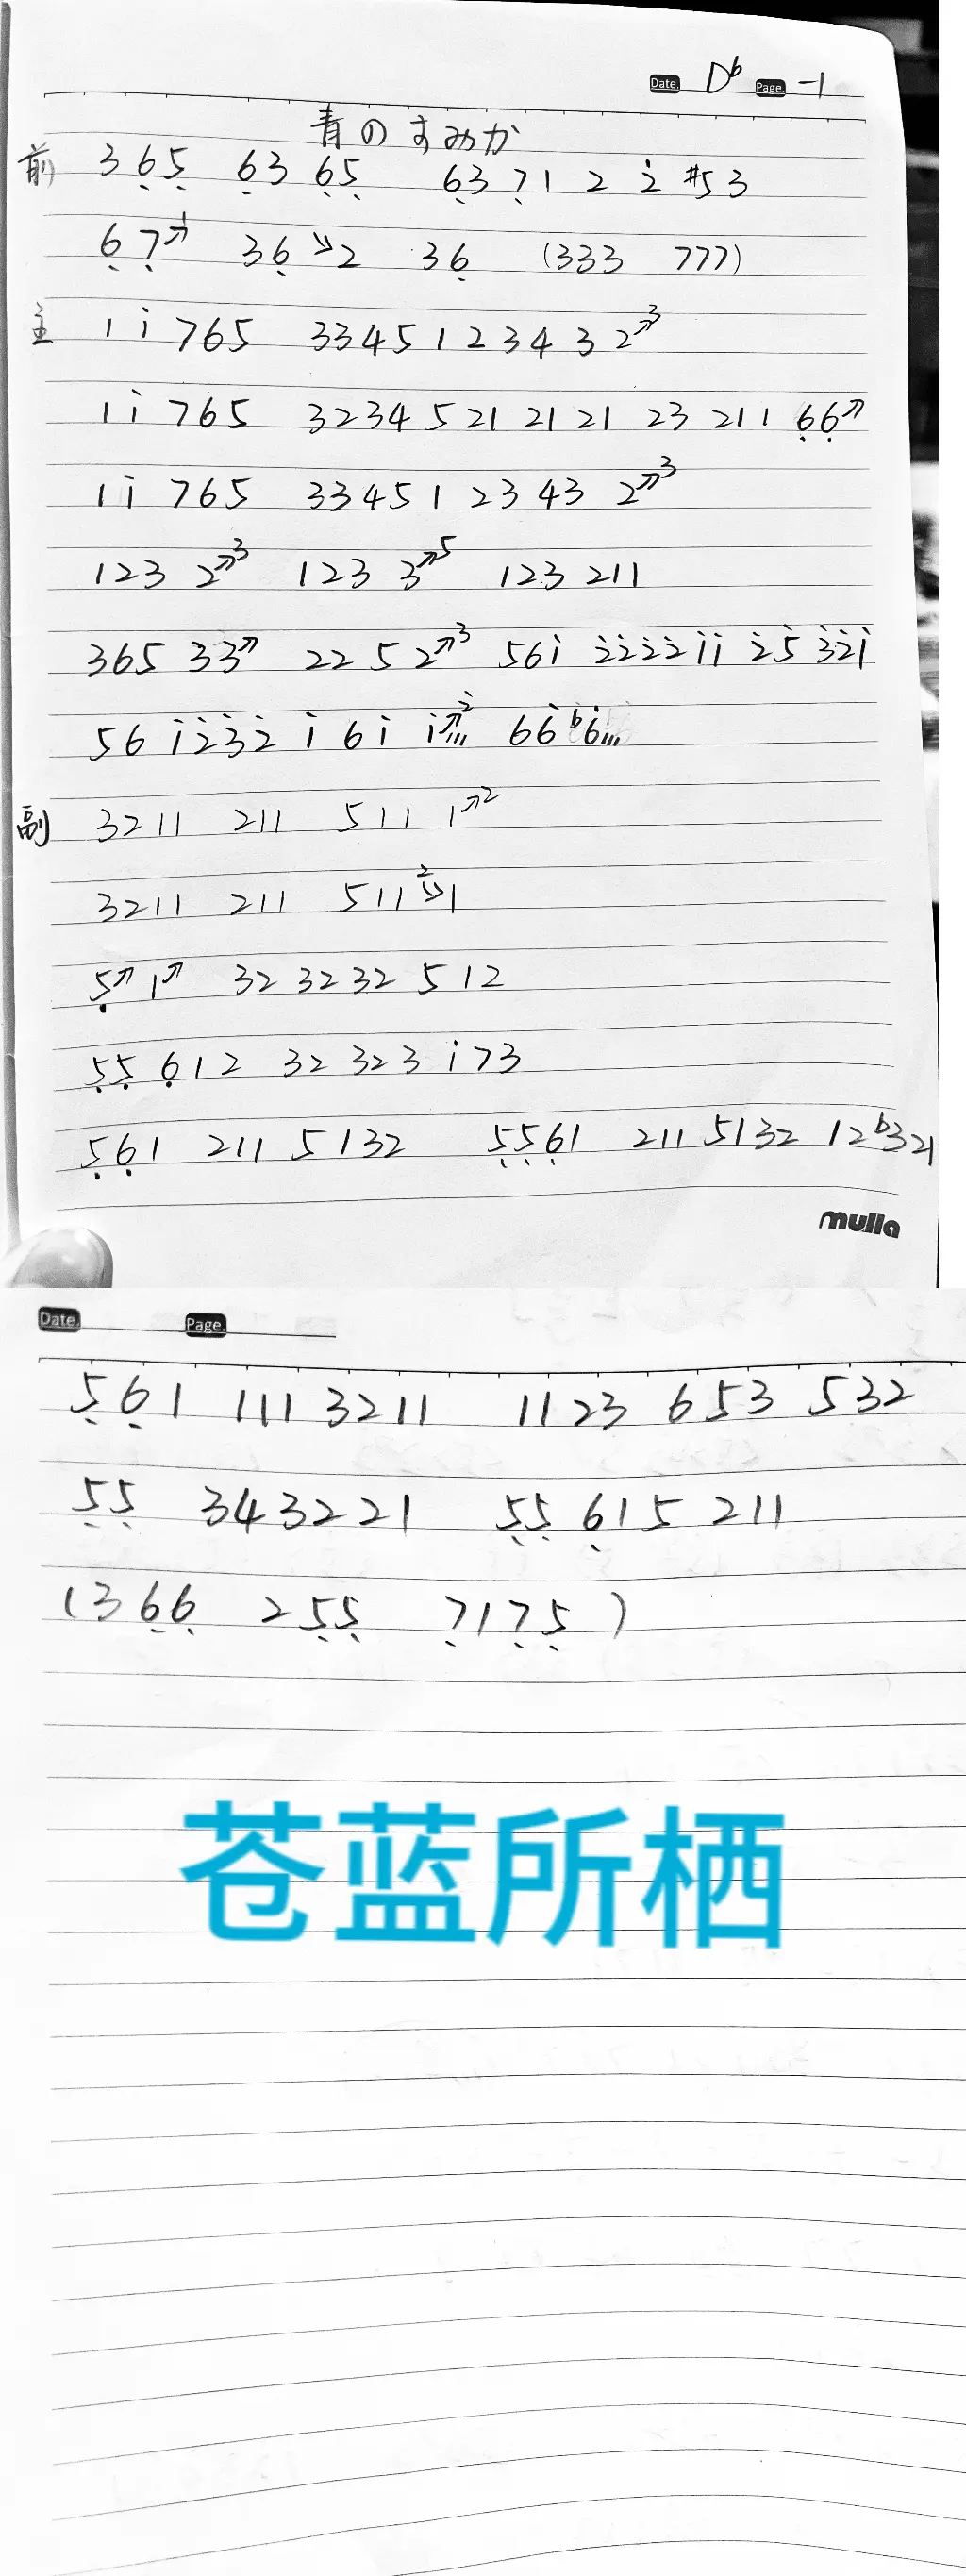 Date. D♭ Page. -1
青のすみか
前 3 6̣ 5̣ 6̣3 6̣5̣ 6̣3 7̣1 2 2̇ #5 3
6̣ 7̣↗1 3 6̣ ↘2 3 6̣ (333 777)
主 1 1̇ 765 3345 1 2 3 4 3 2↗3
1 1̇ 765 3234 5 21 21 21 23 211 6̣6̣↗
1 1̇ 765 3345 1 23 43 2↗3
123 2↗3 123 3↗5 123 211
365 33↗ 22 5 2↗3 561̇ 2̇2̇2̇2̇1̇1̇ 2̇5 3̇2̇1̇
56 1̇2̇3̇2̇ 1̇ 6 1̇ 1̇↗2̇ 66♭6
副 3211 211 511 1↗2
3211 211 511 2↘1
5̣↗ 1↗ 32 32 32 5 12
5̣5̣ 6̣12 32 323 1̇73
5̣6̣1 211 5132 5̣5̣6̣1 211 5132 12♭321
mulla
Date. Page.
5̣6̣1 111 3211 1123 653 532
5̣5̣ 343221 5̣5̣ 6̣15 211
(36̣6̣ 25̣5̣ 7̣17̣5̣)
苍蓝所栖